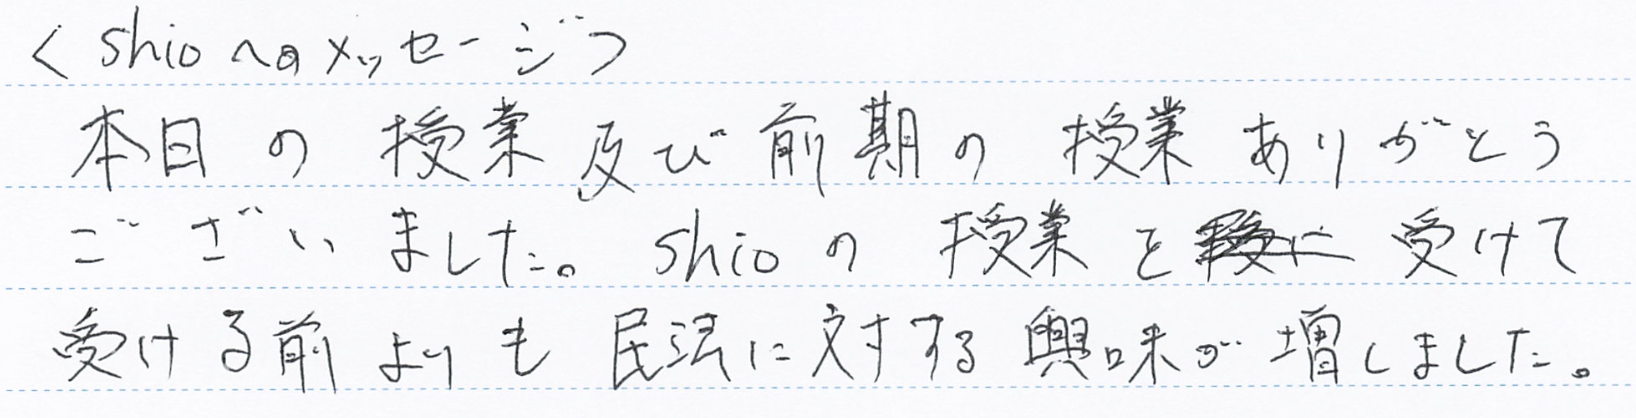 <shioへのメッセージ>
本日の授業及び前期の授業ありがとう
ございました。shioの授業を受けて
受ける前よりも民法に対する興味が増しました。